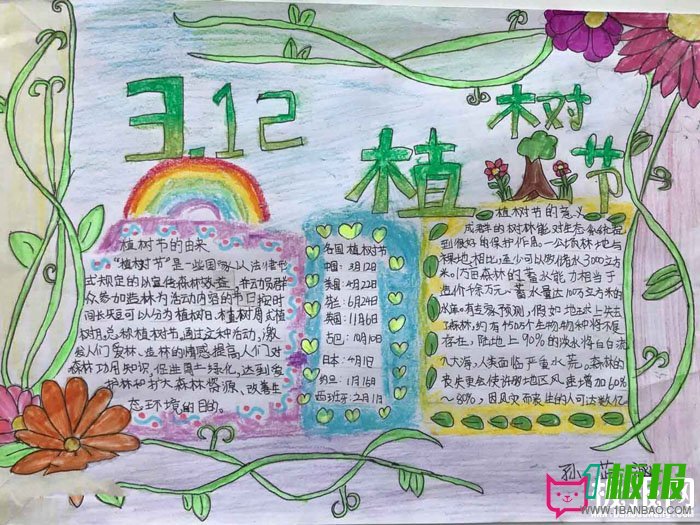 3.12
植树节
植树节的由来
"植树节"是一些国家以法律形
式规定的以宣传森林效益,并动员群
众参加造林为活动内容的节日。按时
间长短可以分为植树日、植树周或植
树月,总称植树节。通过这种活动,激
发人们爱林、造林的情感,提高人们对
森林功用知识,促进国土绿化,达到爱
护林和扩大森林资源、改善生
态环境的目的。
各国植树节
中国:3月12日
4月22日
6月24日
11月6日
古巴:10月10日
日本:4月1日
约旦:1月16日
西班牙:2月1日
植树节的意义
成熟的树林能对生态系统起
到很好的保护作用。一公顷林地与
裸地相比,至少可以多储水3000立方
米。1万亩森林的蓄水能力相当于
蓄水量达100万立方米的
水库。有专家预测,假如地球上失去
了森林,约有450万个生物物种将不复
存生,陆地上90%的淡水将白白流
入大海,人类面临严重水荒。森林的
丧失更会使许多地区风速增加60%
~80%,因风灾而丧生的人可达数亿
孙
1板报
WWW.1BANBAO.COM